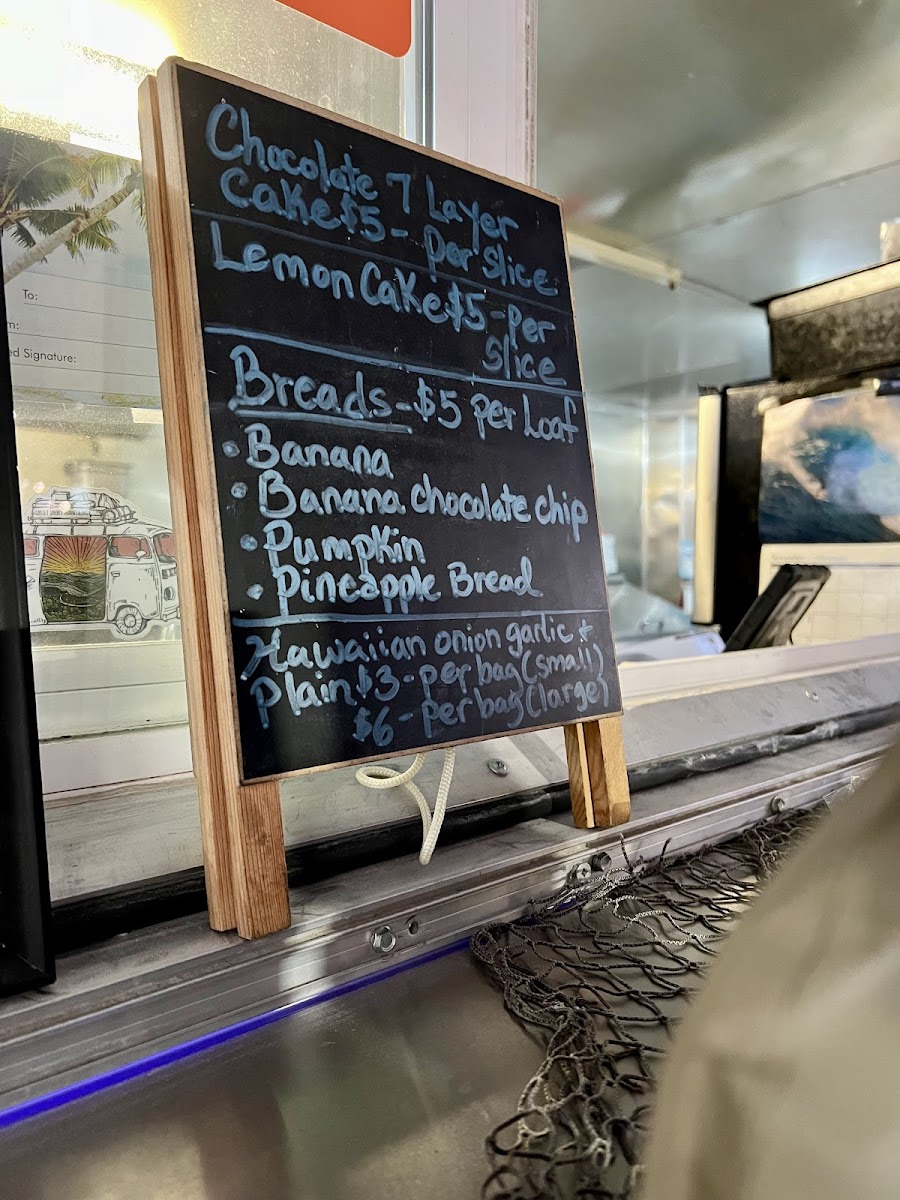 Chocolate 7 Layer
Cake $5 - per slice
Lemon Cake $5 - per
slice
Breads - $5 per Loaf
• Banana
• Banana chocolate chip
• Pumpkin
• Pineapple Bread
Hawaiian onion garlic +
plain $3 - per bag (small)
$6 - per bag (large)
To:
ed Signature: